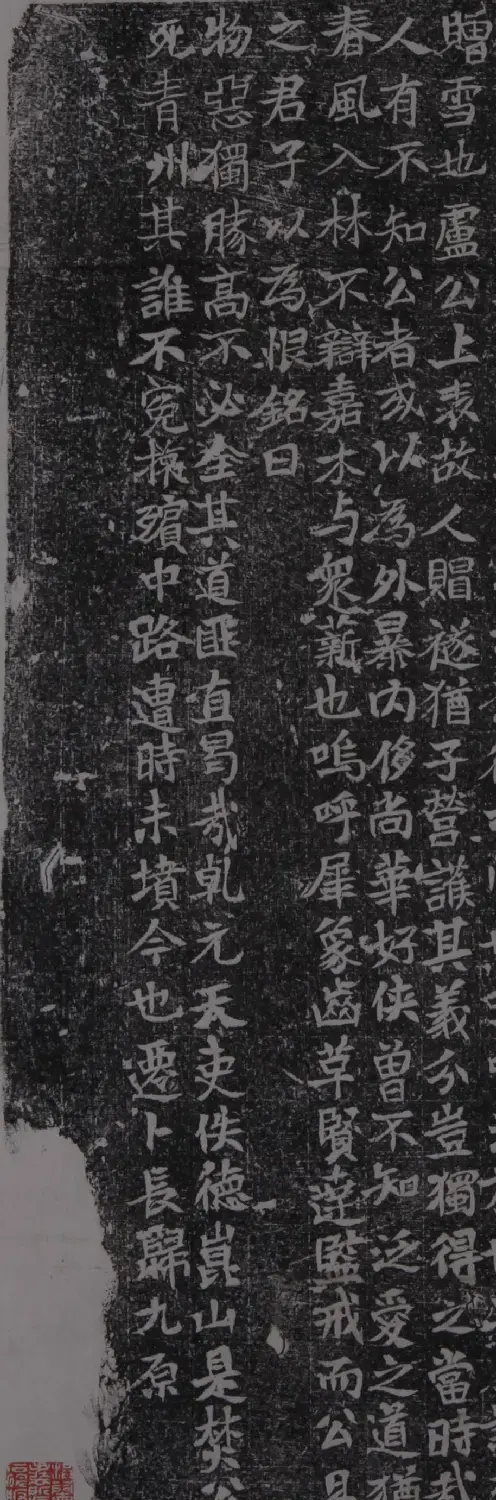 贈雪也盧公上表故人賵襚猶子營護其義分豈獨得之當時哉
人有不知公者或以為外暴内侈尚華好俠曾不知泛愛之道猶
春風入林不辯嘉木与衆薪也嗚呼犀象齒革賢達監戒而公
之君子以為恨銘曰
物惡獨勝髙不必全其道匪直曷哉乹元天吏佚德崑山是焚公
死青州其誰不寃權殯中路遭時未墳今也遷卜長歸九原